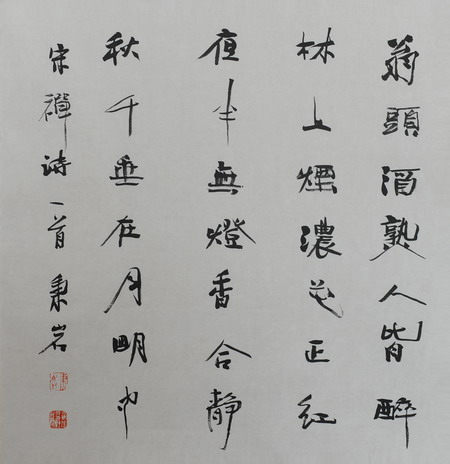 翁頭酒熟人皆醉
林上煙濃花正紅
夜半無燈香合靜
秋千垂在月明中
宋禪詩一首秉岩